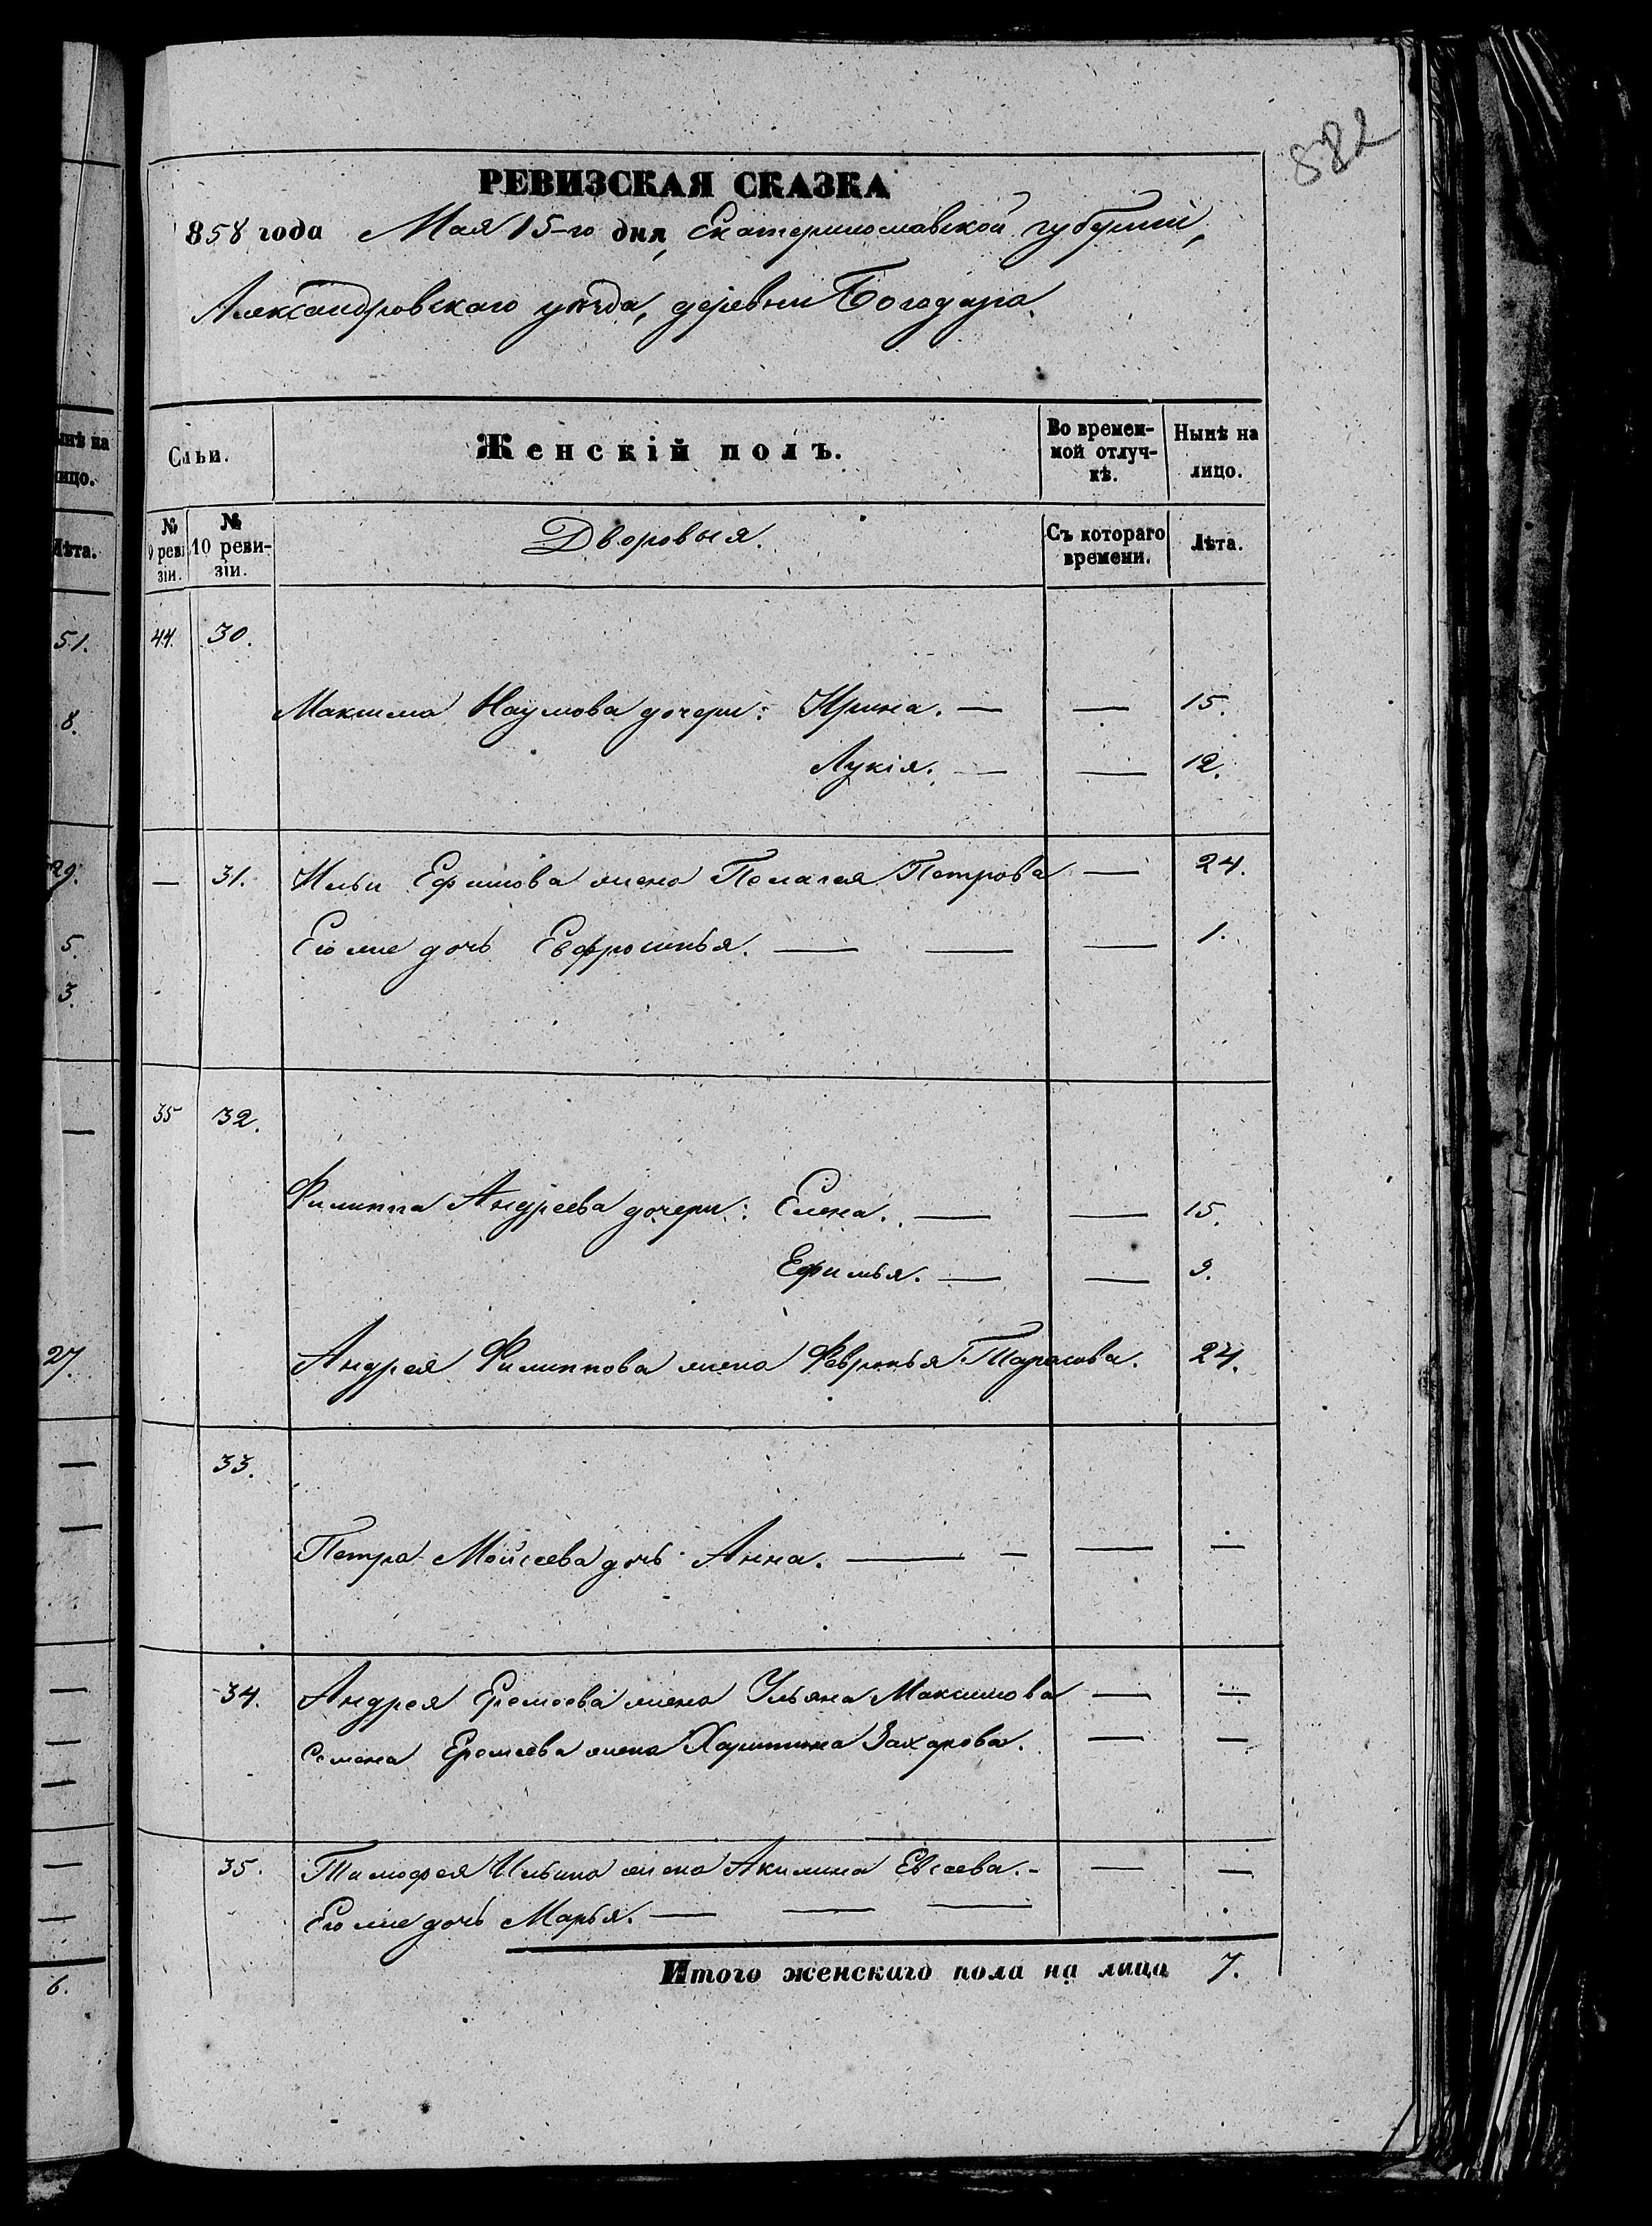 882
РЕВИЗСКАЯ СКАЗКА
858 года Мая 15-го дня, Екатеринославской губерніи,
Александровскаго уѣзда, деревни Богодара.
ынѣ на
ицо.
Лѣта.
51.
8.
29.
5.
3.
27.
6.
Сѣьи.
Женскій полъ.
Во времен-
ной отлуч-
кѣ.
Нынѣ на
лицо.
№
9 реви
зіи.
№
10 реви-
зіи.
Дворовыя.
Съ котораго
времени.
Лѣта.
44. 30.
Максима Наумова дочери: Ирина. — — 15.
Лукія. — — 12.
— 31. Ильи Ефимова жена Пелагея Петрова — 24.
Его же дочь Евфросинья. — — — 1.
35 32.
Филиппа Андреева дочери: Елена. — — 15.
Ефимья. — — 9.
Андрея Филиппова жена Февронья Тарасова. 24.
33.
Петра Мойсеева дочь Анна. — — — —
34. Андрея Еремеева жена Ульяна Максимова — —
Семена Еремеева жена Харитина Захарова. — —
35. Тимофея Ильина жена Акилина Евсеева. - — —
Его же дочь Марья. — — —
Итого женскаго пола на лица 7.